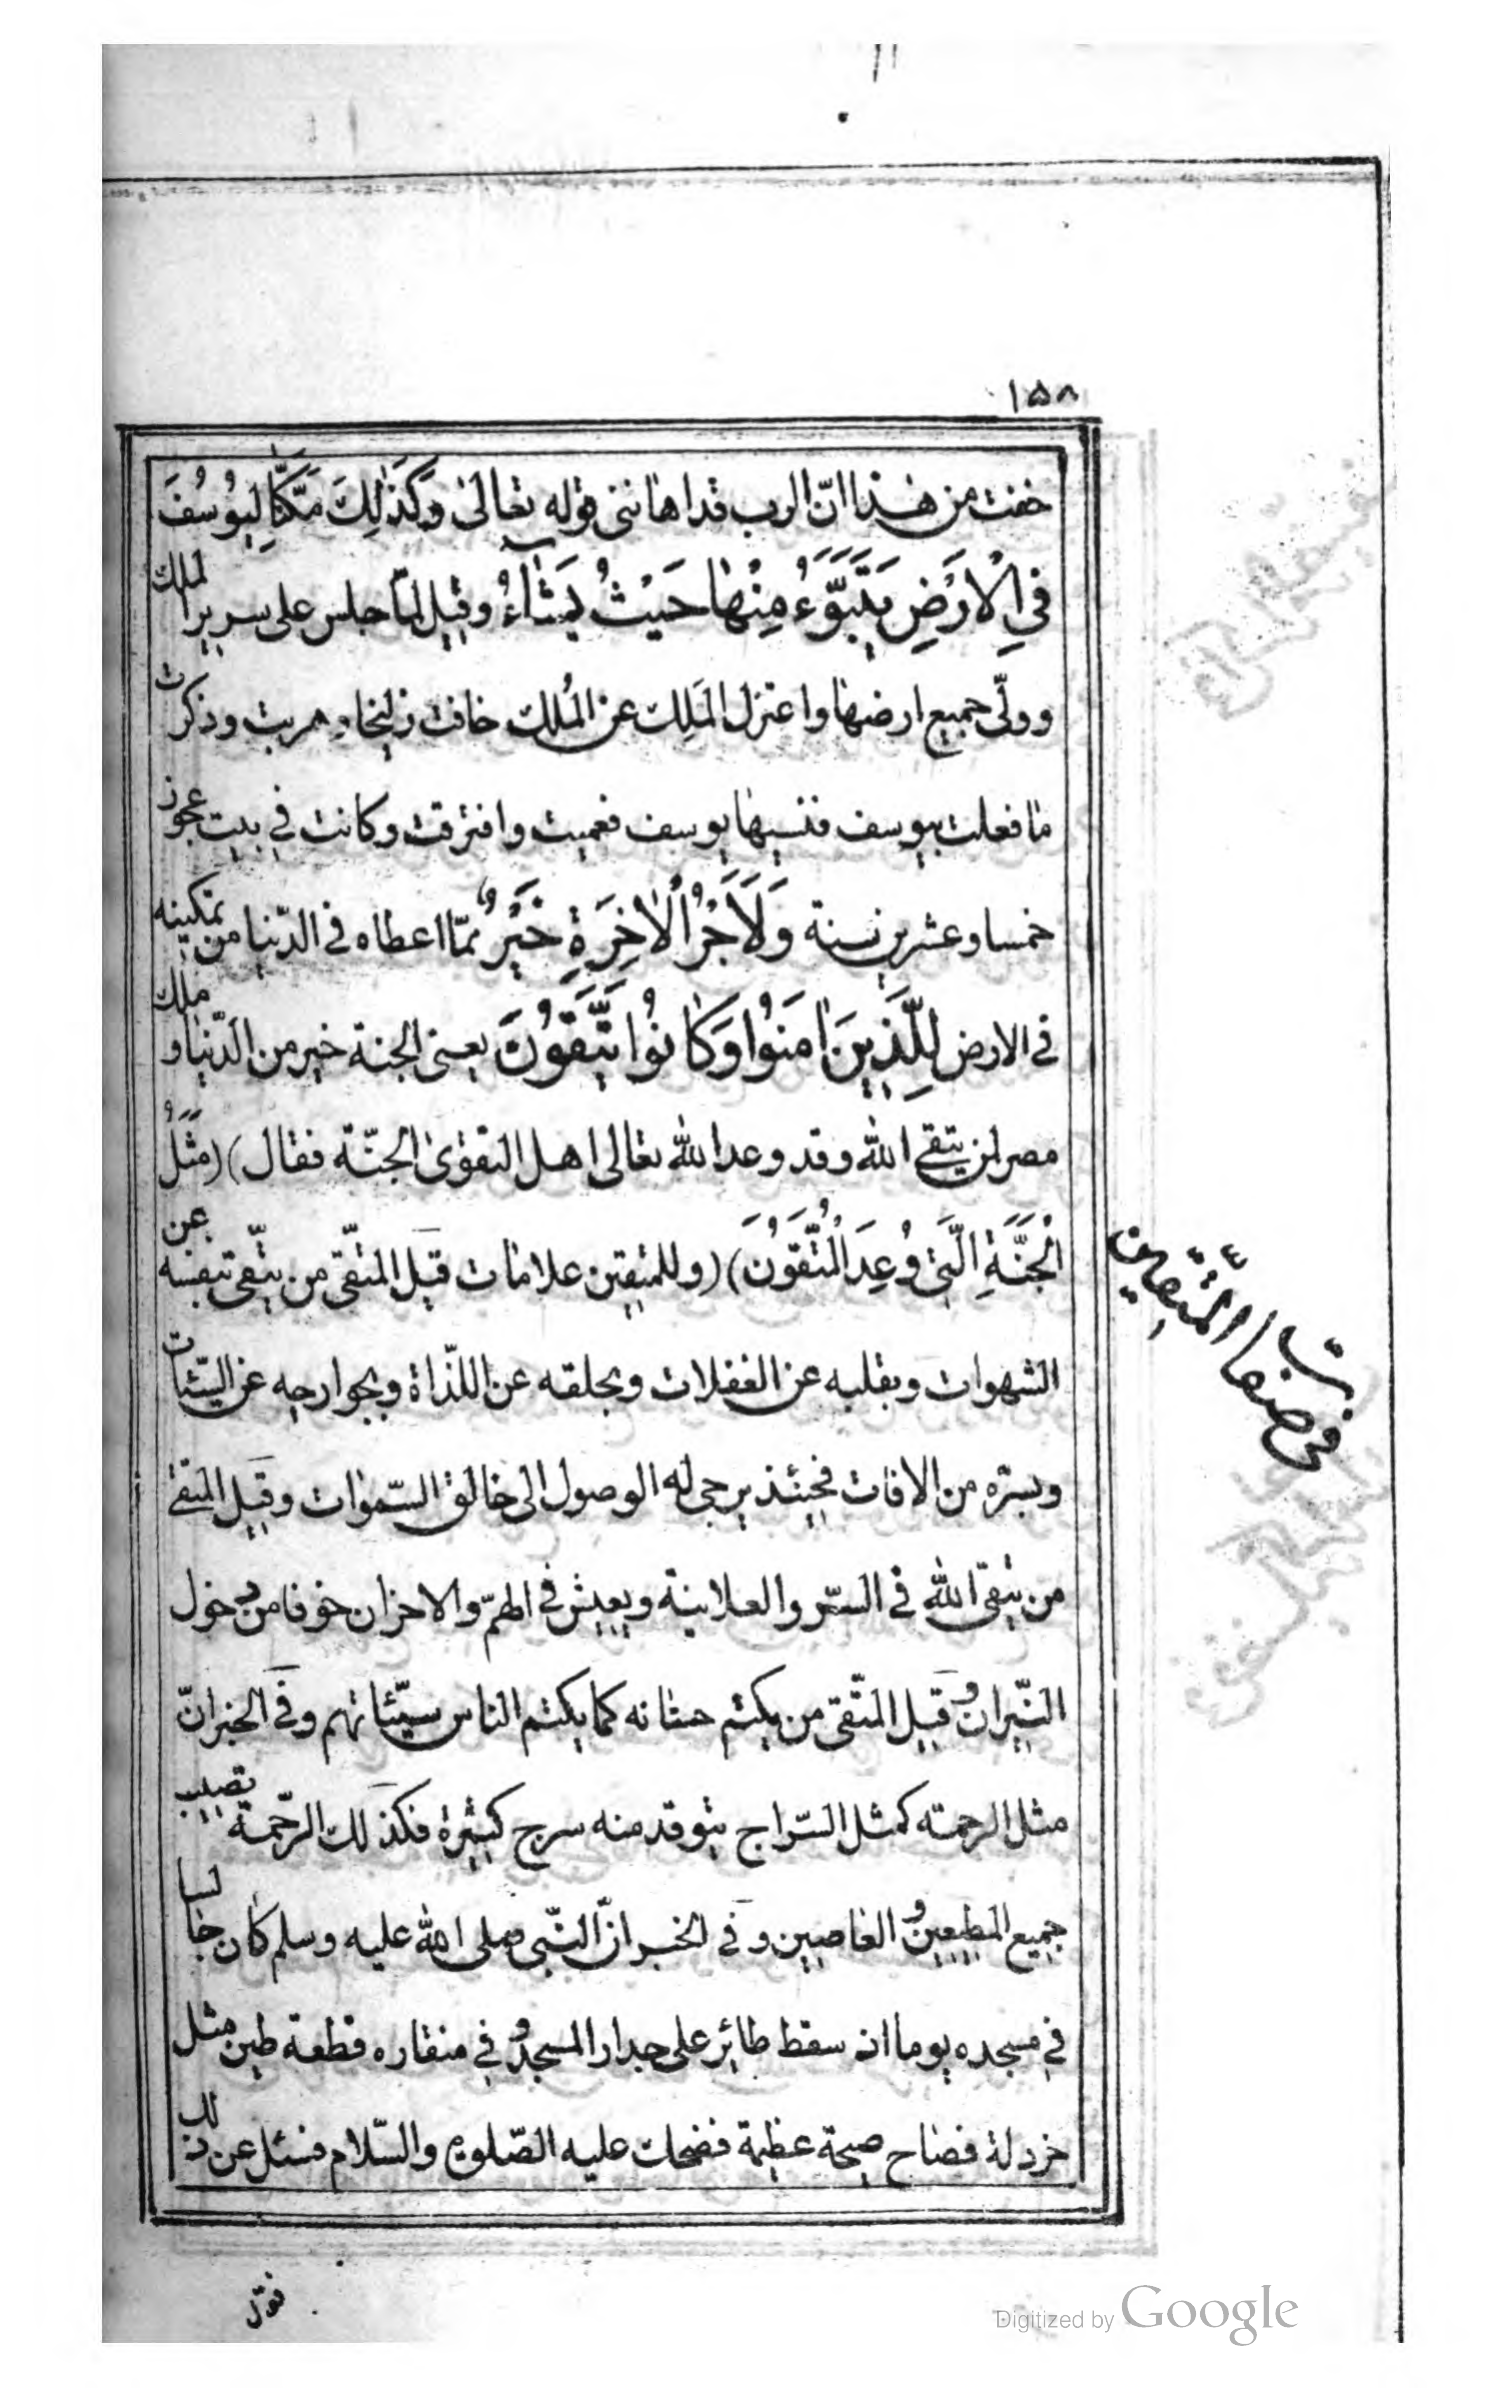 ١٥٨
خفت من هذا انّ الرب قد اهانني قوله تعالى وَكَذٰلِكَ مَكَّنَّا لِيُوسُفَ
فِي الْاَرْضِ يَتَبَوَّءُ مِنْهٰا حَيْثُ يَشٰاءُ وقيل لمّا جلس على سرير الملك
وولّى جميع ارضها واعتزل المَلِك عن المُلك خافت زليخا وهربت وذكرت
ما فعلت بيوسف فنسيها يوسف فعميت وافترقت وكانت في بيت عجوز
خمسا وعشرين سنة وَلَاَجْرُ الْاٰخِرَةِ خَيْرٌ ممّا اعطاه في الدّنيا من تمكينه
في الارض لِلَّذِينَ اٰمَنُوا وَكٰانُوا يَتَّقُونَ يعنى الجنة خير من الدّنيا وملك
مصر لمن يتقي الله وقد وعد الله تعالى اهل التقوى الجنّة فقال) (مَثَلُ
الْجَنَّةِ الَّتِي وُعِدَ الْمُتَّقُونَ) (وللمتقين علامات قيل المتّقى من يتّقى بنفسه عن
الشهوات وبقلبه عن الغفلات وبحلقه عن اللّذاة وبجوارحه عن السّيّئات
وبسرّه من الافات فحينئذ يرجى له الوصول الى خالق السّموات وقيل المتقي
من يتقى الله في السّر والعلانية ويعيش في الهمّ والاحزان خوفا من دخول
النّيران وقيل المتّقى من يكتم حسناته كما يكتم الناس سيّئاتهم وفي الخبر انّ
مثل الرحمته كمثل السّراج يتوقد منه سرج كثيرة فكذلك الرّحمة تصيب
جميع المطيعين والعاصيين وفي الخبر انّ النّبي صلى الله عليه وسلم كان جالسا
في مسجده يوما ان سقط طائر على جدار المسجد وفي منقاره قطعة طين مثل
خردلة فصاح صيحة عظيمة فضحك عليه الصّلوة والسّلام فسئل عن ذلك
في صفات المتّقين
فقال
Digitized by Google